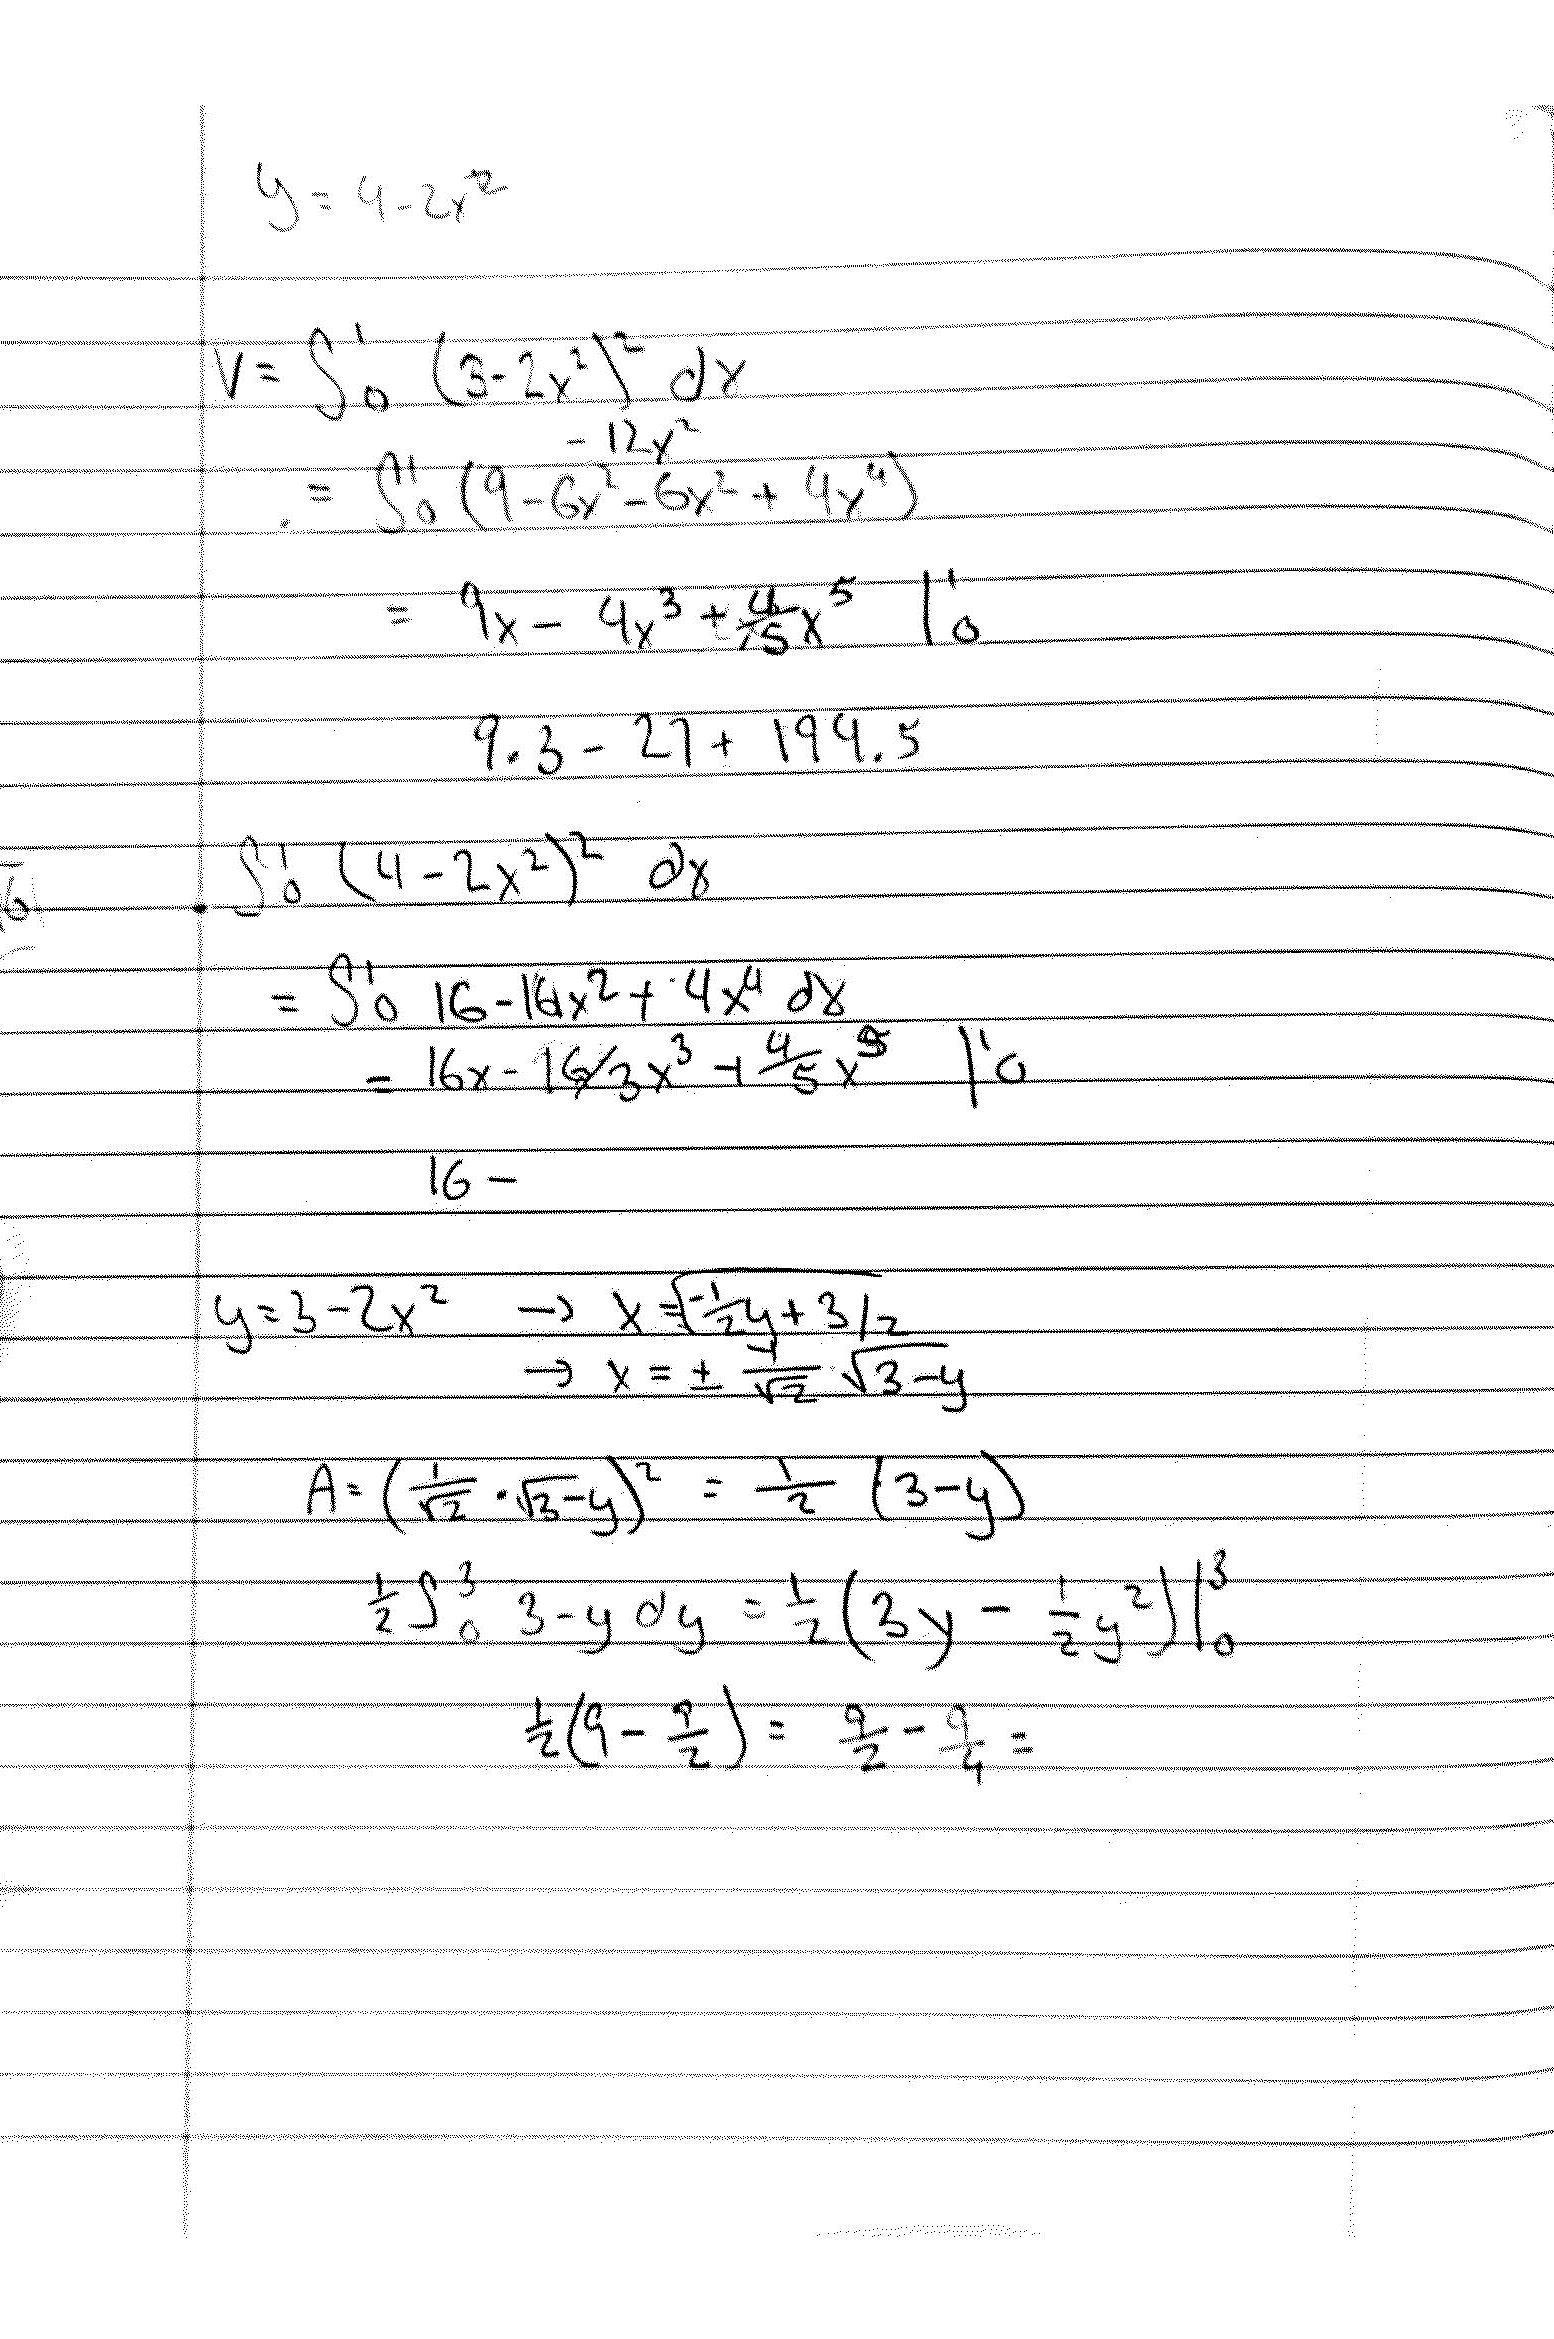 y = 4 - 2x²
V = ∫₀¹ (3 - 2x²)² dx
- 12x²
= ∫₀¹ (9 - 6x² - 6x² + 4x⁴)
= 9x - 4x³ + 4/5 x⁵ |₀¹
9.3 - 27 + 194.5
∫₀¹ (4 - 2x²)² dx
= ∫₀¹ 16 - 16x² + 4x⁴ dx
= 16x - 16/3 x³ + 4/5 x⁵ |₀¹
16 -
y = 3 - 2x² → x = √(-1/2 y + 3/2)
→ x = ± 1/√2 · √(3-y)
A = (1/√2 · √(3-y))² = 1/2 (3-y)
1/2 ∫₀³ 3-y dy = 1/2 (3y - 1/2 y²) |₀³
1/2 (9 - 9/2) = 9/2 - 9/4 =